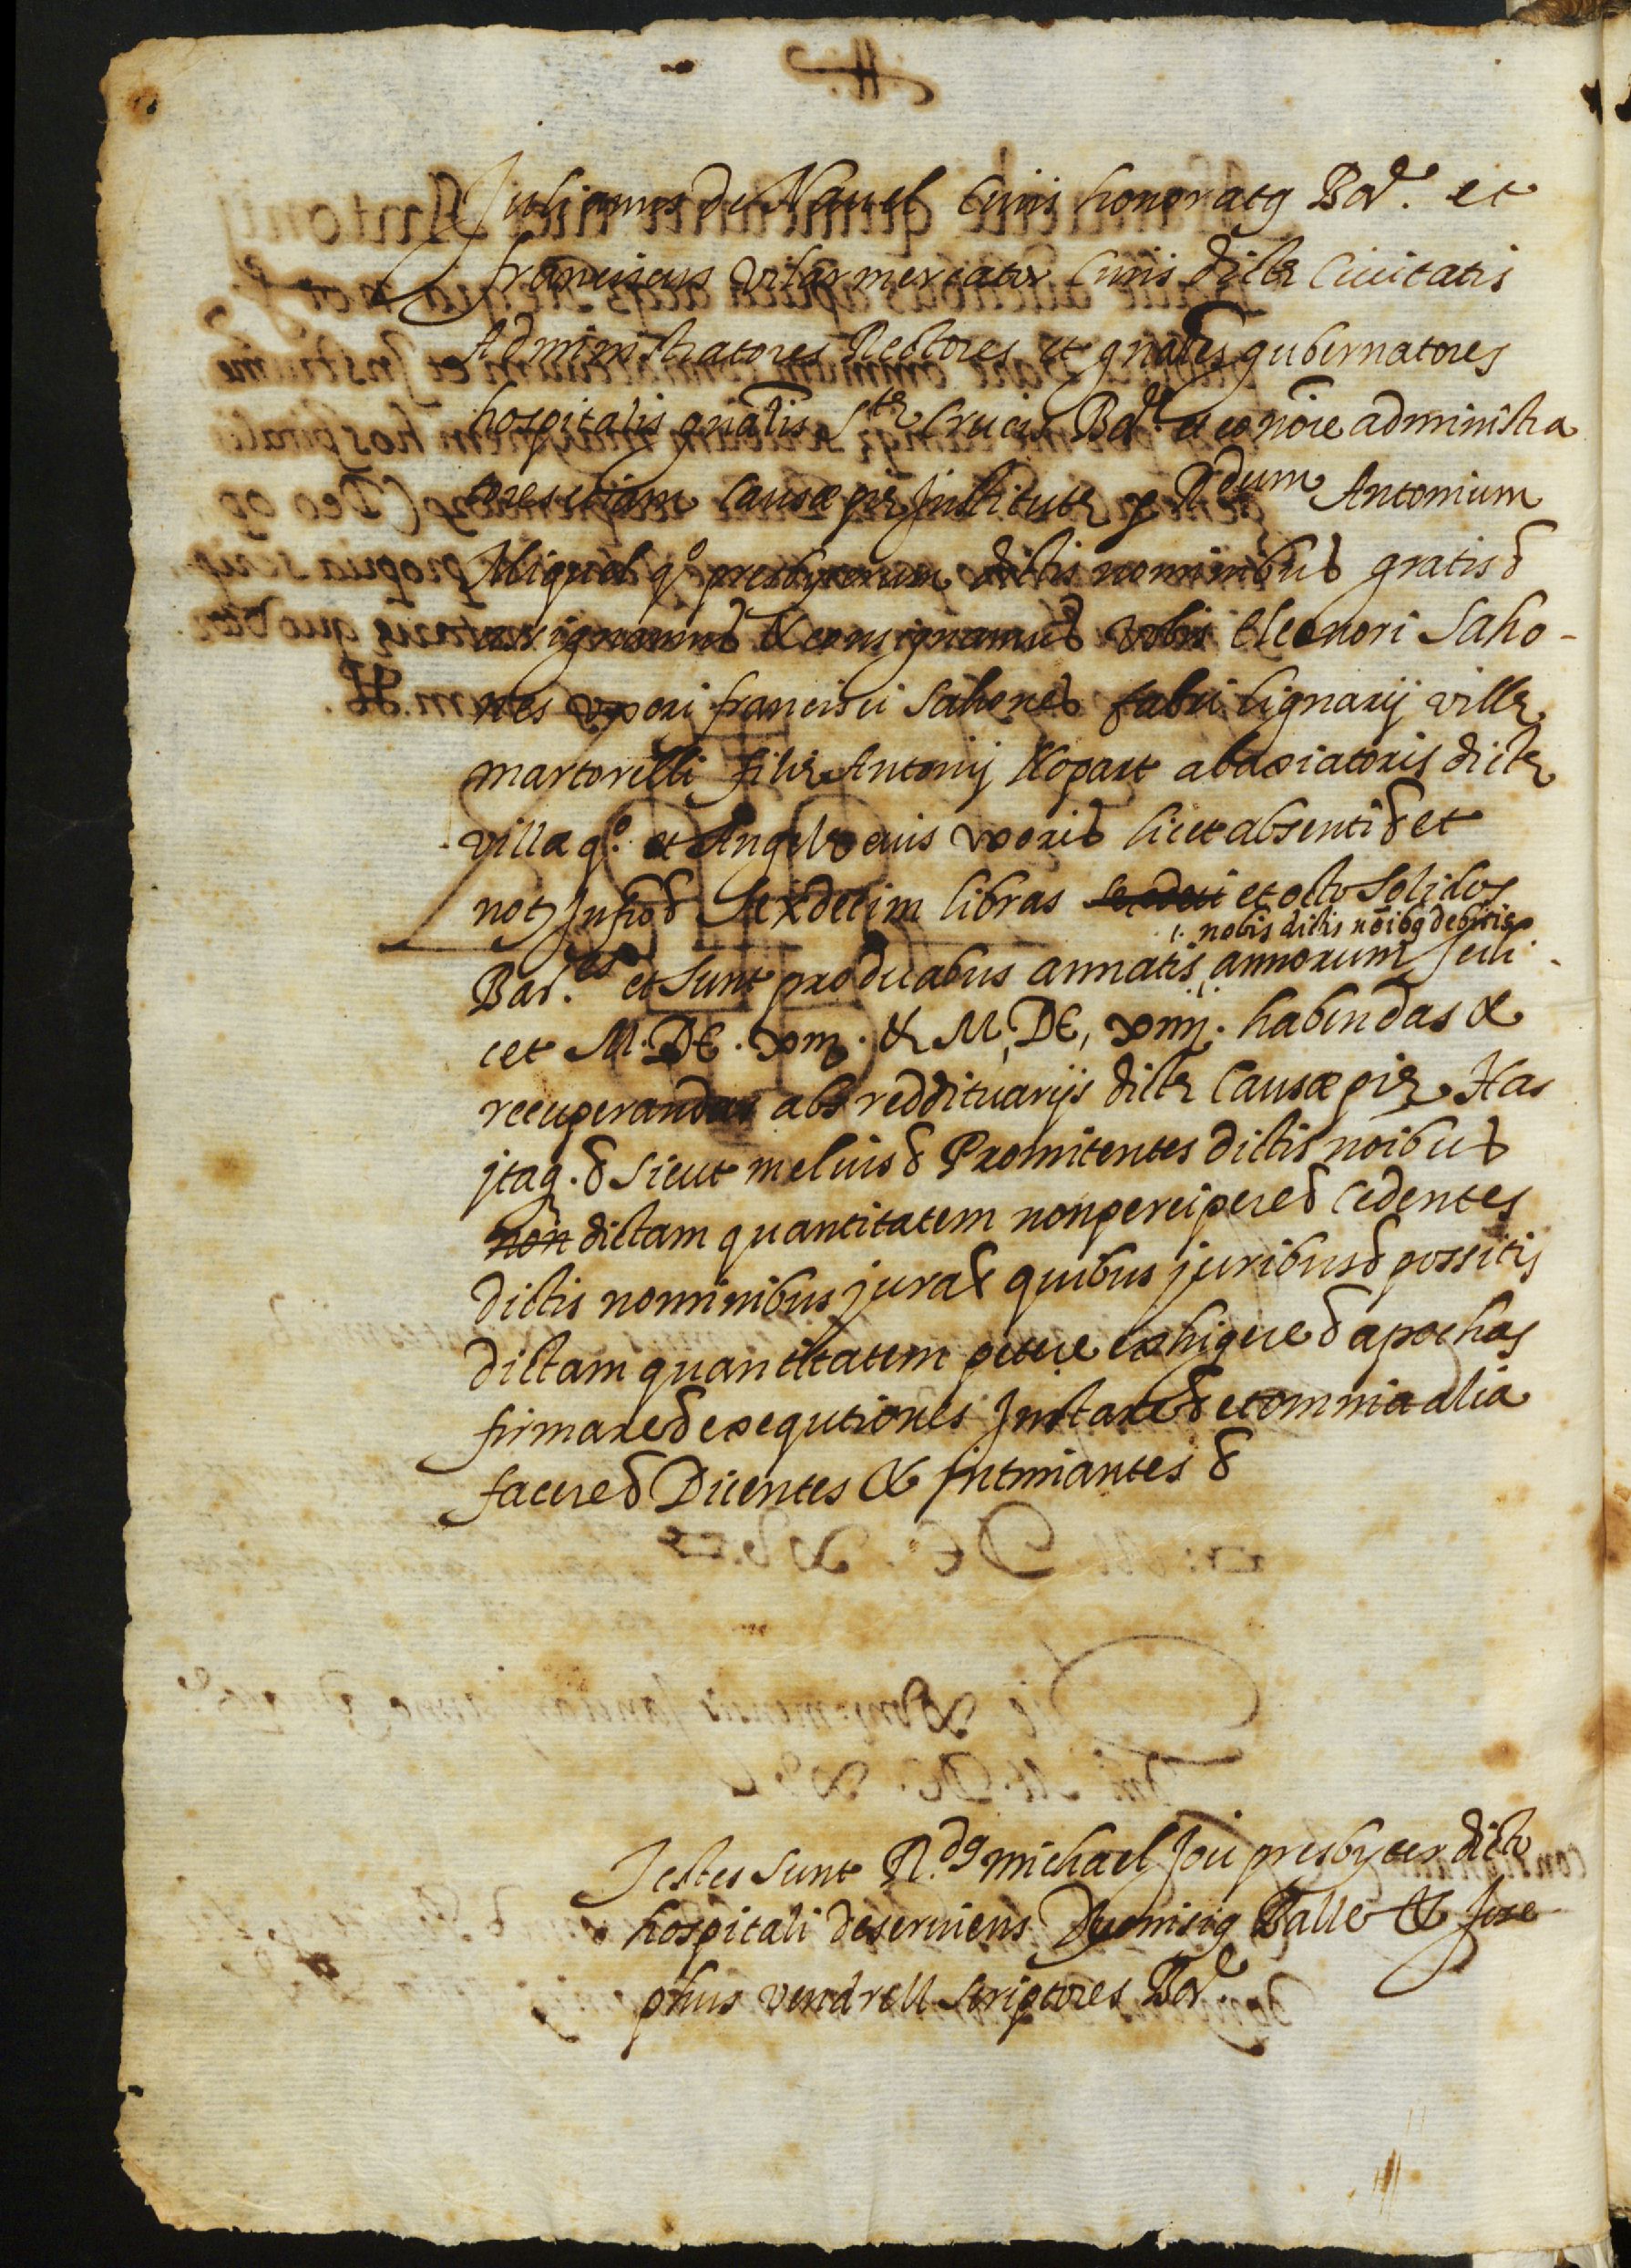 Julianus de Navel Civis honoratq Bar.e et
franciscus Vilar mercator Civis dictę Civitatis
Administratores Rectores et gnales gubernatores
hospitalis gnalis Stę Crucis Bar.e et eo noie administra
tores etiam Causæ pię Institutę p Rdum Antonium
Miquel qo presbyterum dictis nominibus gratis &
assignamus & consignamus vobis Eleonori Saho-
nes vxori francisci Sahones fabri lignarij villę
martorelli filię Antonij Ropart abaxiatoris dictę
villa qo. et Angelę eius vxoris licet absenti & et
notº Infrº & Sexdecim libras et octo Solidos
1. nobis dictis noibq debitis
Bar.es et sunt pro duabus annatis annorum scili
cet M.DC.xiij. & M,DC,xiiij. habendas &
recuperandas abs reddituarijs dictę Causæ pię Has
jtaq. & Sicut melius & Promitentes dictis noibus
non dictam quantitatem non percipere & Cedentes
dictis nominibus jura & quibus juribus & possitis
dictam quantitatem petere exhigere & apochas
firmare & exequtiones Instare & et omnia alia
facere & Dicentes & Intimantes &
Testes sunt R.dq michael Joli presbyter dicto
hospitali deserviens Dyonisiq Balle & Jose
phus vendrell scriptores Bar.e